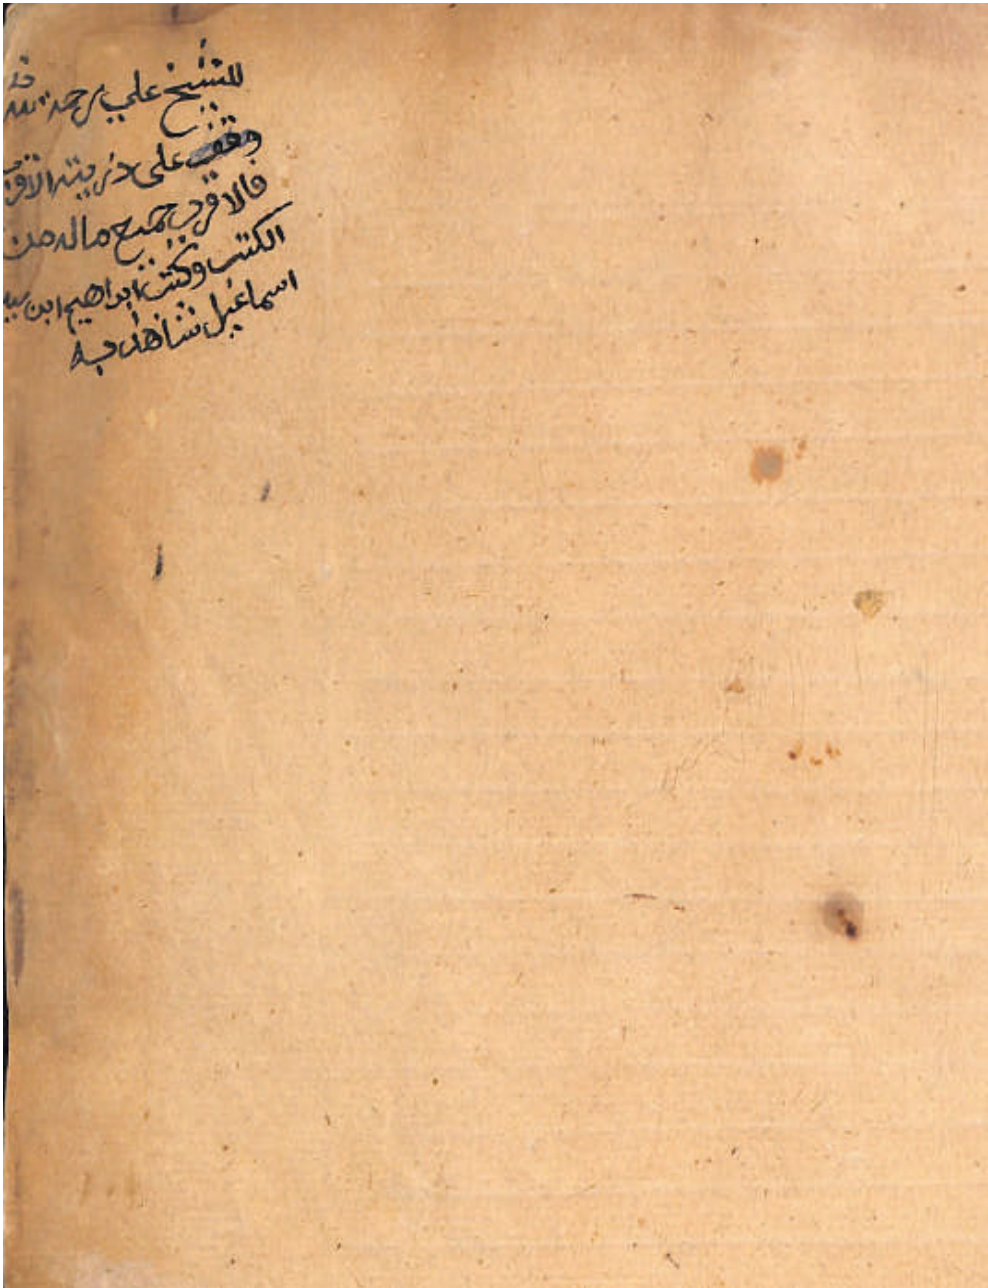 للشيخ علي رحمه الله قد
وقف على ذريته الاقرب
فالاقرب جميع ماله من
الكتب وكتب ابراهيم ابن
اسماعيل شاهد به